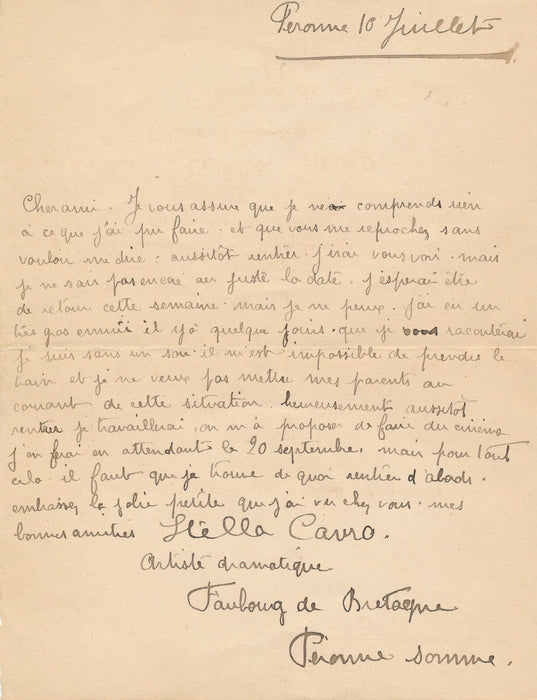 Peronne 10 Juillet
Cher ami. Je vous assure que je comprends rien
à ce que j'ai pu faire. et que vous me reprochez sans
vouloir me dire: aussitôt rentrée. j'irai vous voir. mais
je ne sais pas encore au juste la date. j'esperai être
de retour cette semaine. mais je ne peux. j'ai eu un
très gros ennui il y à quelque jours. que je vous raconterai
je suis sans un sou. il m'est impossible de prendre le
train et je ne veux pas mettre mes parents au
courant de cette situation. heureusement aussitôt
rentrer je travaillerai, on m'à proposer de faire du cinéma
j'en ferai en attendant le 20 septembre. mais pour tout
cela il faut que je trouve de quoi rentrer d'abords.
embrassez la jolie petite que j'ai vu chez vous. mes
bonnes amitiés Stèlla Carro.
Artiste dramatique
Faubourg de Bretagne
Péronne Somme.